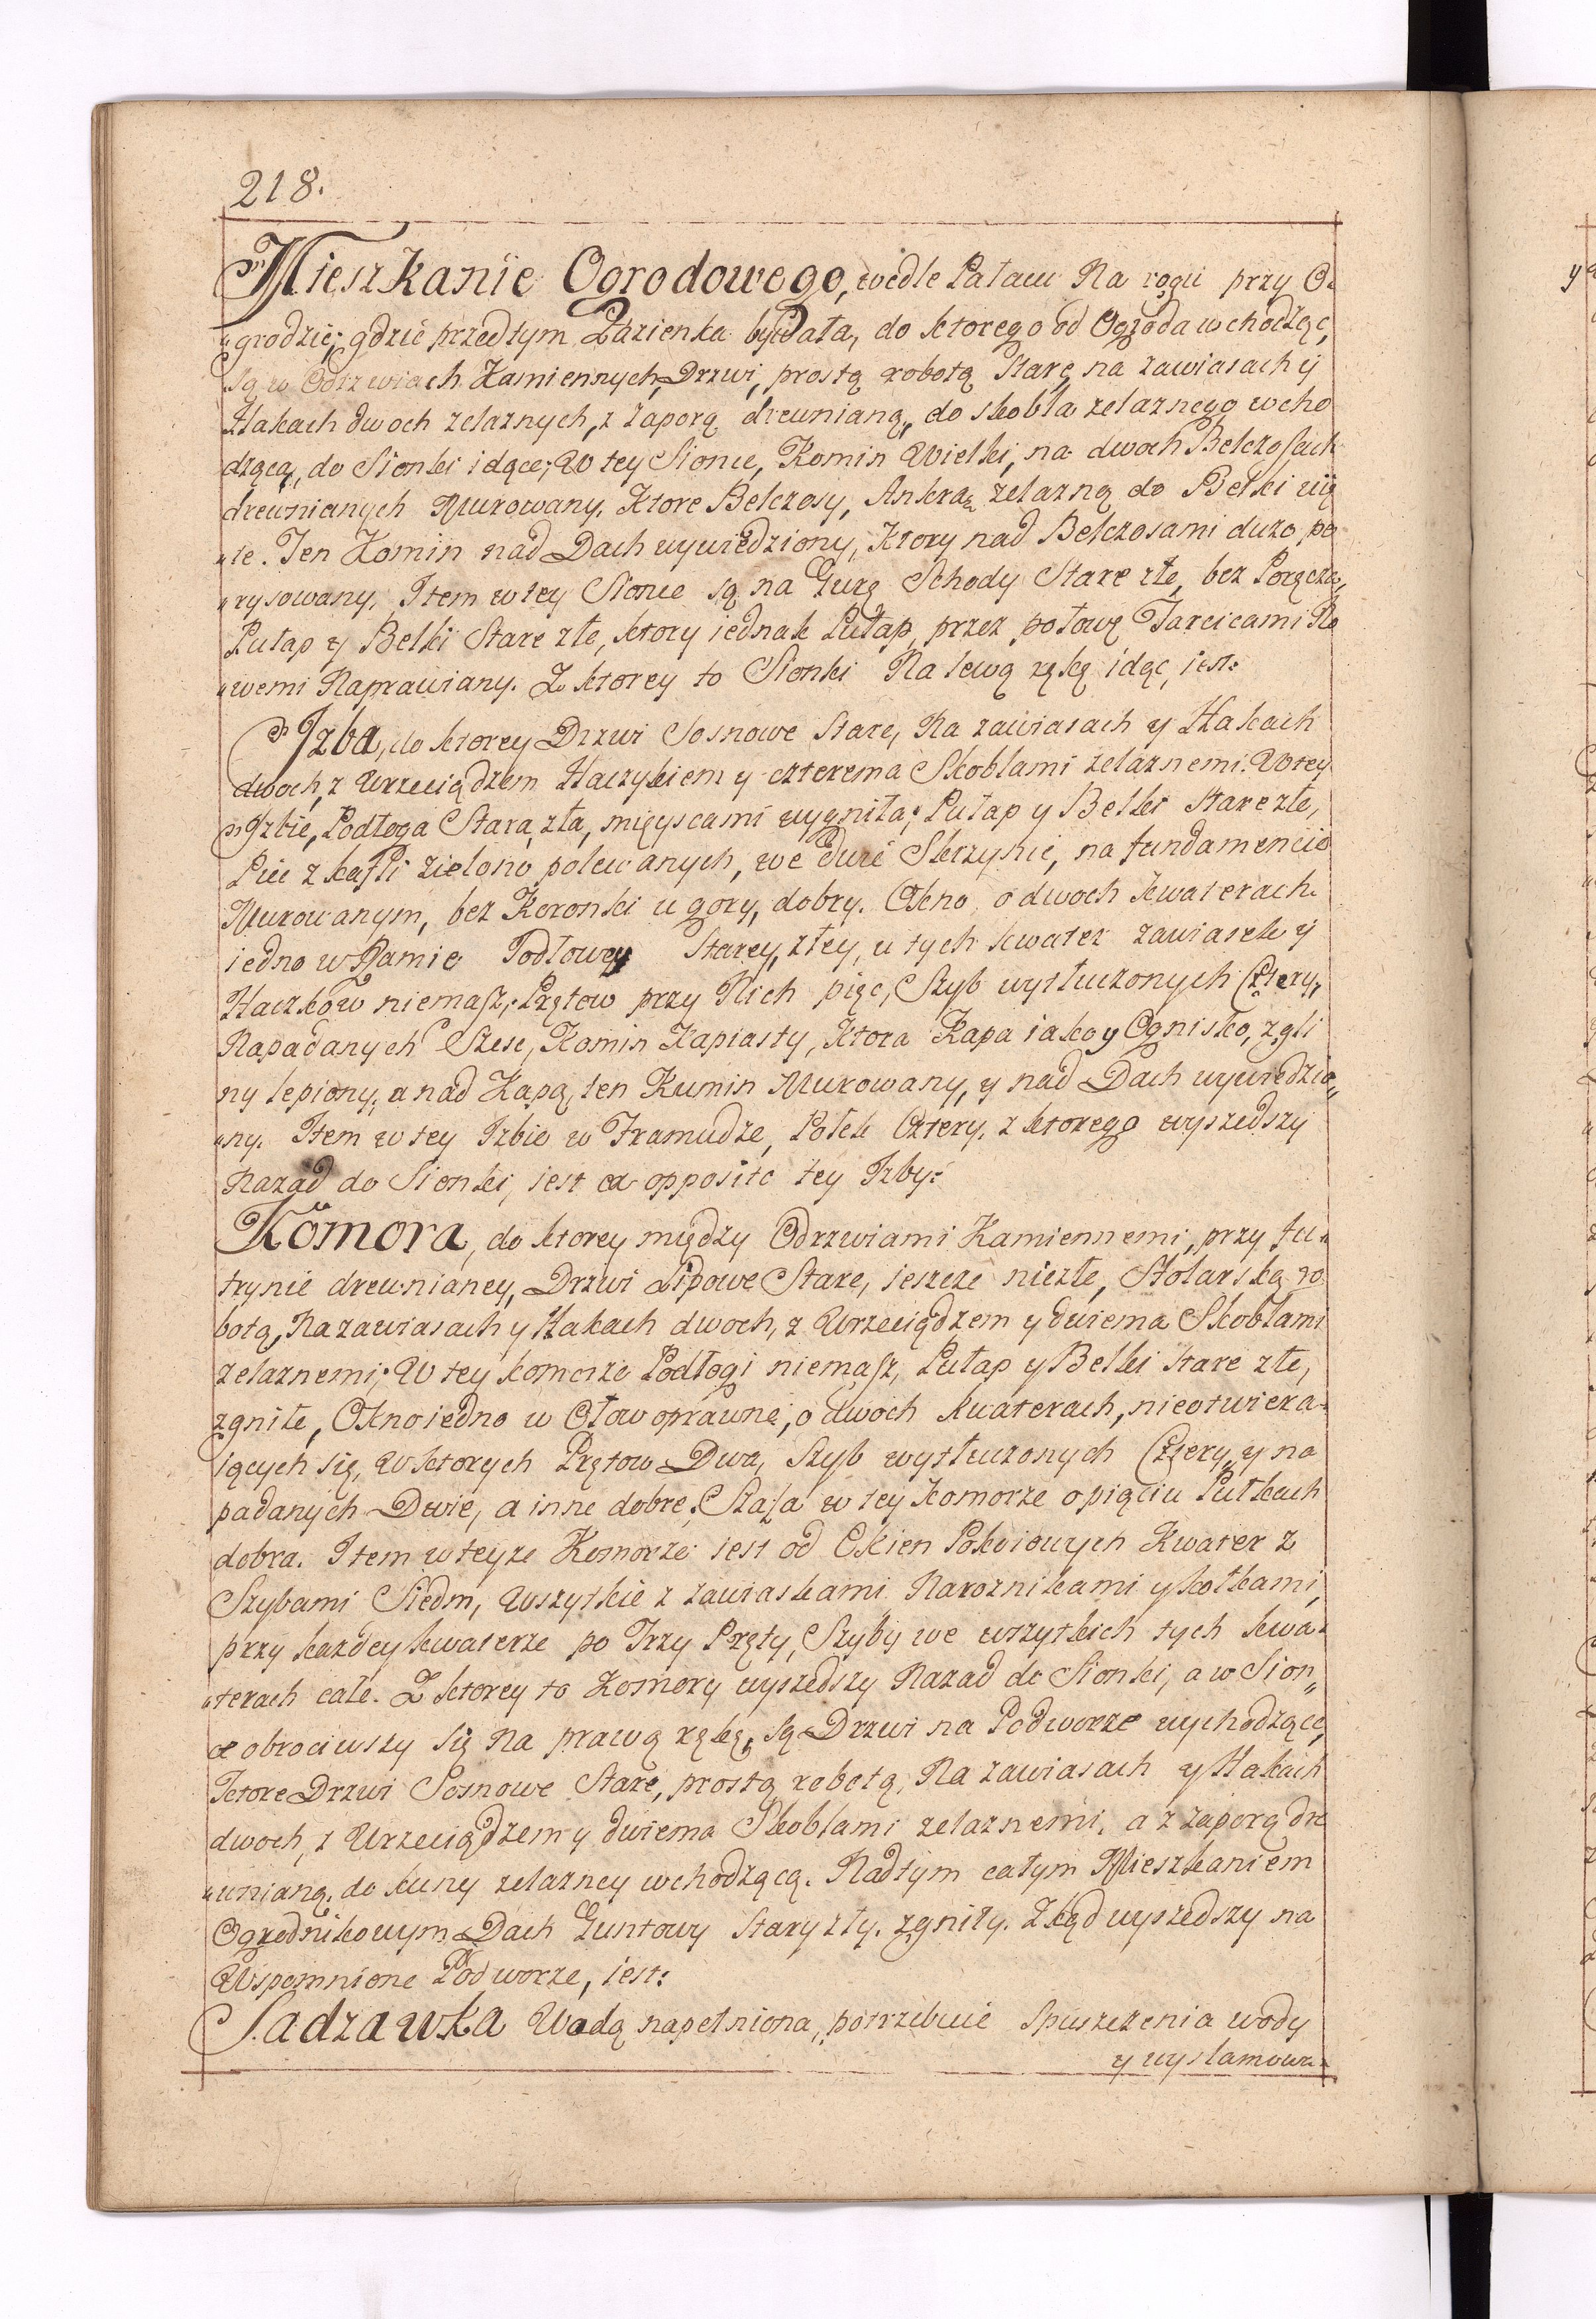 218.
Mieszkanie Ogrodowego, wedle Pałacu Na rogu przy O„
„grodzie; gdzie przedtym Łazienka bydała, do ktorego od Ogroda wchodząc,
są w Odrzwiach Kamiennych, Drzwi, prostą robotą Stare, na zawiasach y
Hakach dwoch zelaznych, z zaporą drewnianą, do skobla zelaznego wcho
dzącą, do Sionki idące; W tey Sionce, Komin Wielki, na dwoch Belczosach
drewnianych Murowany. Ktore Belczosy, Ankrą zelazną do Belki uię
„te. Ten Komin nad Dach wywiedziony, Ktory nad Belczosami duzo po
„rysowany. Item w tey Sionce są na Gurę Schody Stare złe, bez Poręcza,
Pułap y Belki Stare złe, ktory iednak Pułap, przez połowę Tarcicami No
„wemi Naprawiany. Z ktorey to Sionki Na lewą rękę idąc, iest:
Izba, do ktorey Drzwi Sosnowe Stare, Na zawiasach y Hakach
dwoch, z Wrzeciądzem Haczykiem y czterema Skoblami zelaznemi. W tey
Izbie, Podłoga Stara, zła, mięyscami wygniła; Pułap y Belki Stare złe,
Piec z kafli zielono polewanych, we dwie Skrzynie, na fundamencie
Murowanym, bez Koronki u gory, dobry. Okno o dwoch kwaterach
iedno w Ramie Podłowey Starey, złey, u tych kwater zawiasek y
Haczkow niemasz, Prętow przy Nich pięc, Szyb wytłuczonych Cztery,
Napadanych Szesc, Komin Kapiasty, Ktora Kapa iako y Ognisko, z gli
ny lepiony, a nad Kapą, ten Kumin Murowany, y nad Dach wywiedzio„
„ny. Item w tey Izbie w Framudze, Połek Cztery. z ktorego wyszedszy
Nazad do Sionki, iest ex opposito tey Izby:
Komora, do ktorey między Odrzwiami Kamiennemi, przy fu„
trynie drewnianey, Drzwi Lipowe Stare, ieszcze niezłe, Stolarską ro
botą, Na zawiasach y Hakach dwoch, z Wrzeciądzem y dwiema Skoblami
zelaznemi; W tey komorze Podłogi niemasz, Pułap y Belki Stare złe,
zgniłe, Okno iedno w Ołow oprawne, o dwoch kwaterach, nieotwiera„
iących się, W ktorych Prętow Dwa, Szyb wytłuczonych Cztery, y na
padanych Dwie, a inne dobre. Szafa w tey Komorze o pięciu Pułkach
dobra. Item w teyze Komorze iest od Okien Pokoiowych Kwater z
Szybami Siedm, Wszytkie z zawiaskami Naroznikami y kołkami,
przy kazdey kwaterze po Trzy Pręty, Szyby we wszytkich tych kwa„
„terach całe. Z ktorey to Komory wyszedszy Nazad do Sionki, a w Sion„
ce obrociwszy się Na prawą rękę, są Drzwi na Podworze wychodzące,
Ktore Drzwi Sosnowe Stare, prostą robotą, Na zawiasach y Hakach
dwoch, z Wrzeciądzem y dwiema Skoblami zelaznemi, a z zaporą dre
„wnianą, do kuny zelazney wchodzącą. Nadtym całym Mieszkaniem
Ogrodnikowym Dach Guntowy Stary zły. zgniły. Zkąd wyszedszy na
Wspomnione Podworze, iest:
Sadzawka Wodą napełniona, potrzebuie Spuszczenia wody
y wyslamowa„